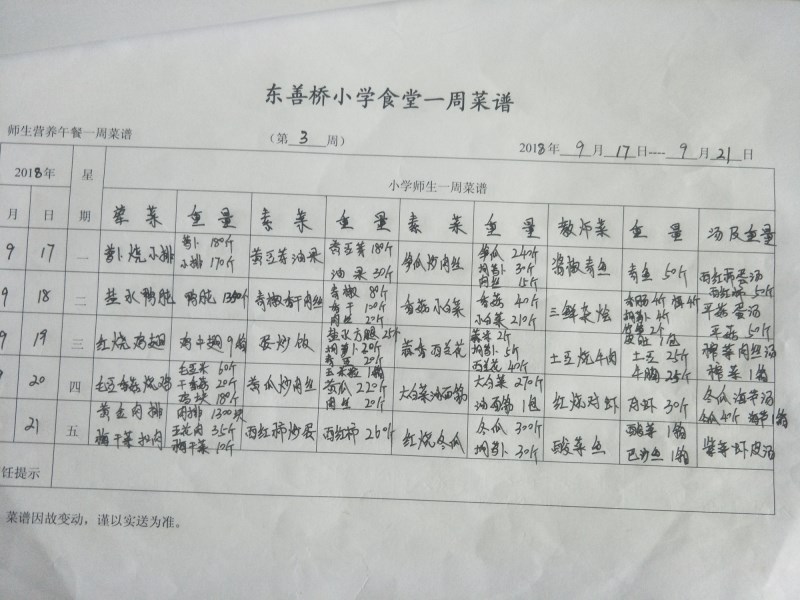 东善桥小学食堂一周菜谱
师生营养午餐一周菜谱 （第 3 周） 2018年 9 月 17 日---- 9 月 21 日
2018年 星期 小学师生一周菜谱
月 日 荤菜 重量 素菜 重量 素菜 重量 教师菜 重量 汤及重量
9 17 一 萝卜烧小排 萝卜180斤 小排170斤 油果30斤 笋瓜炒肉丝 笋瓜240斤 胡萝卜30斤 肉丝15斤 青鱼50斤 西红柿蛋汤 西红柿50斤
9 18 二 盐水鸭腿 鸭腿 香干肉丝 青椒80斤 香干100斤 肉丝20斤 香菇小白菜 香菇40斤 小白菜210斤 三鲜杂烩 胡萝卜4斤 平菇蛋汤 平菇50斤
9 19 三 红烧鸡翅 鸡中翅9箱 蛋炒饭 盐水方腿25斤 胡萝卜20斤 玉米粒1箱 西兰花 胡萝卜5斤 西兰花40斤 土豆烧牛肉 土豆25斤 牛腩25斤 榨菜肉丝汤 榨菜1箱
9 20 四 毛豆香菇烧鸡 毛豆米60斤 干香菇20斤 鸡块180斤 黄瓜炒肉丝 黄瓜220斤 肉丝20斤 大白菜油面筋 大白菜270斤 油面筋1包 红烧对虾 对虾30斤 冬瓜海带汤 冬瓜40斤 海带1箱
21 五 黄金肉排 梅干菜扣肉 肉排1300块 五花肉35斤 梅干菜10斤 西红柿炒蛋 西红柿260斤 红烧冬瓜 冬瓜300斤 胡萝卜30斤 酸菜鱼 酸菜1箱 巴沙鱼1箱 紫菜虾皮汤
任提示
菜谱因故变动，谨以实送为准。